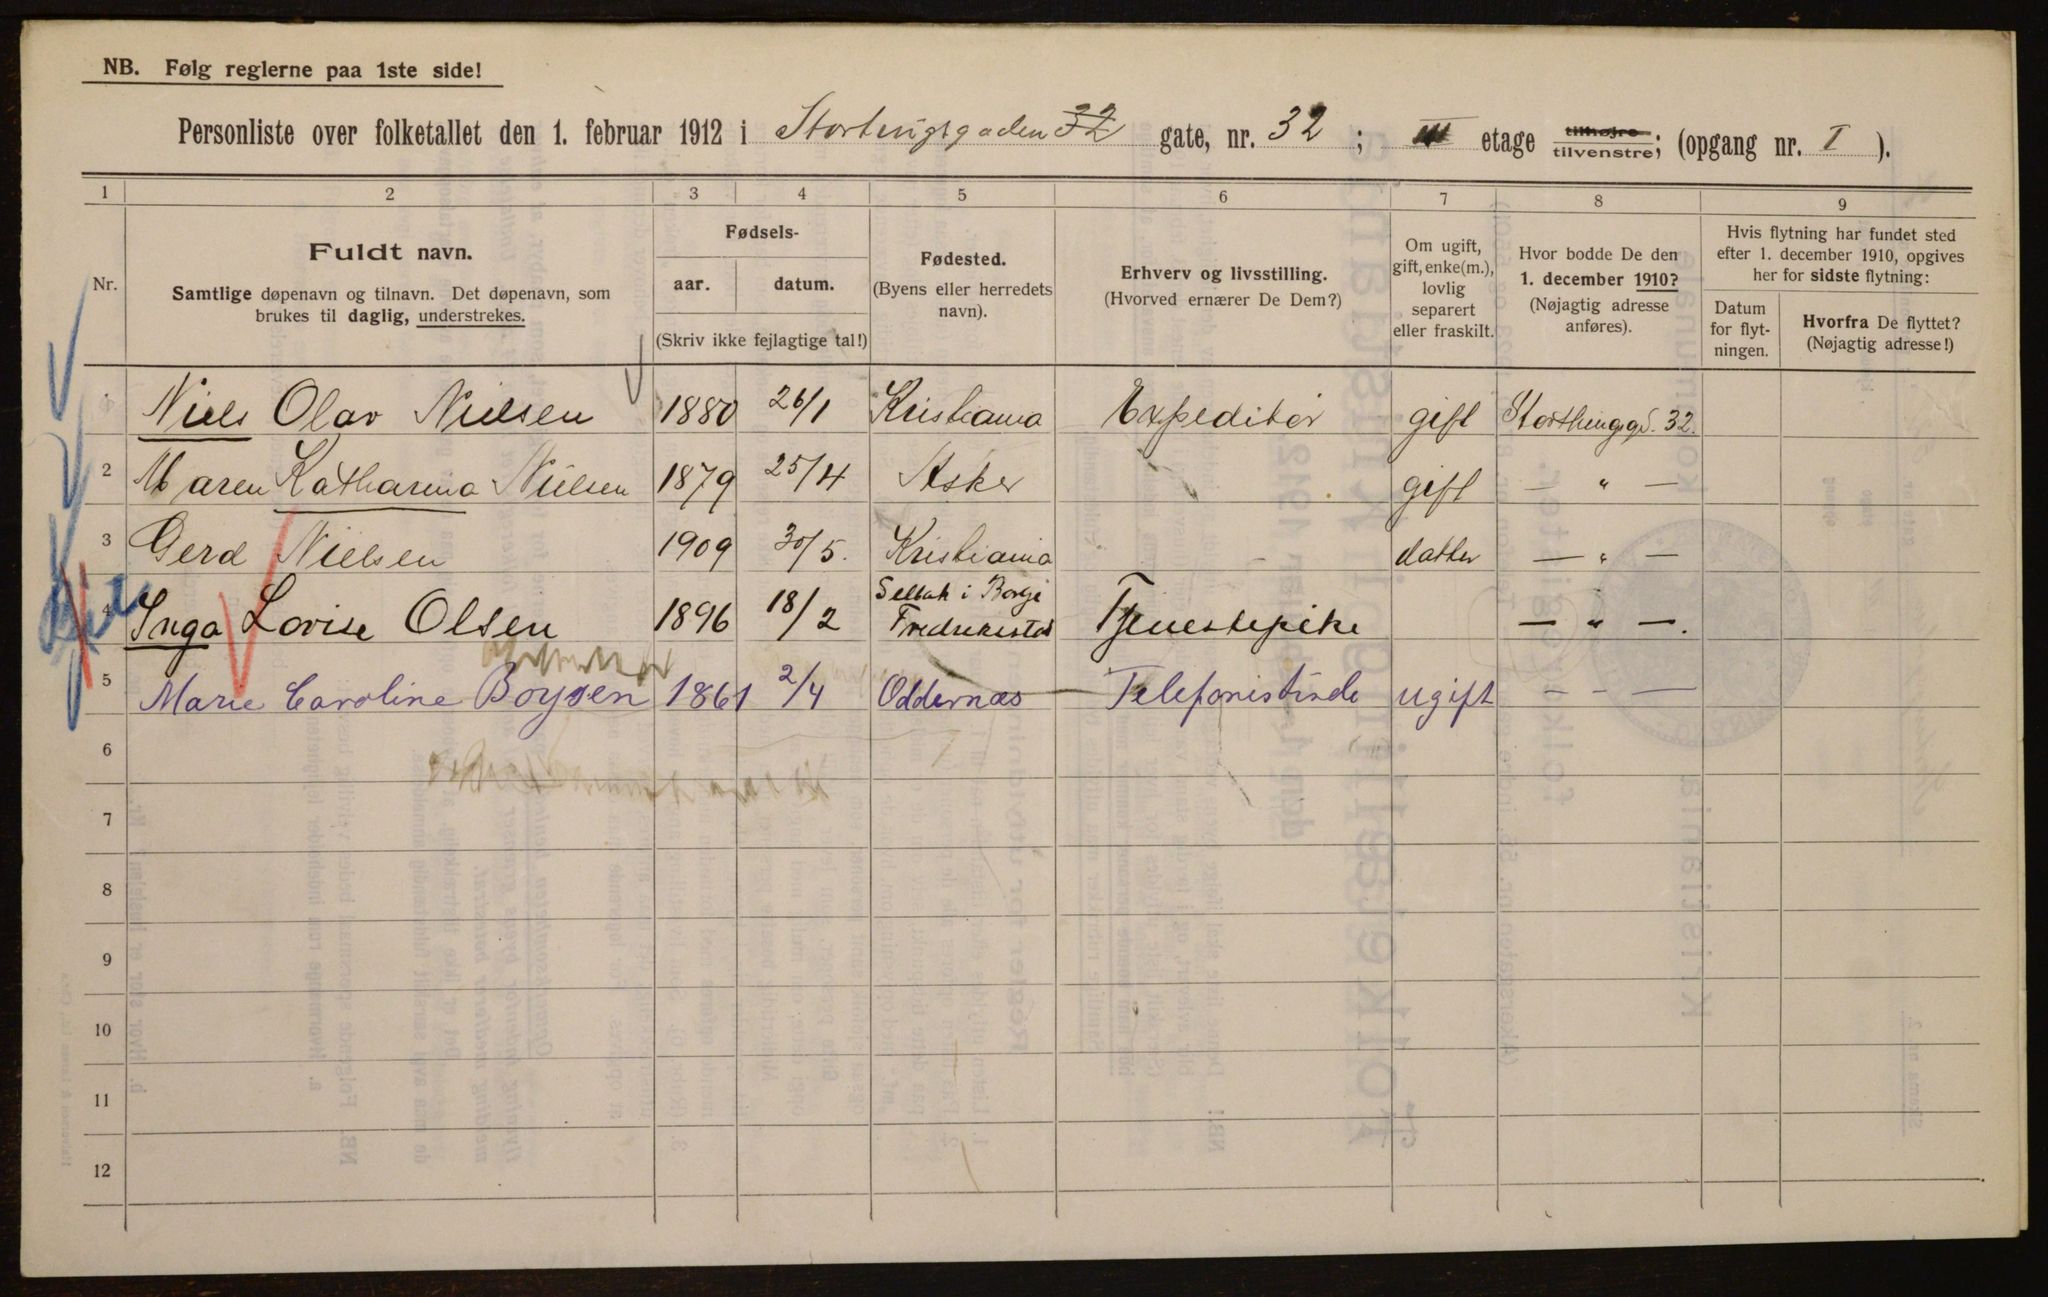 NB. Følg reglerne paa 1ste side!
Personliste over folketallet den 1. februar 1912 i Stortingsgaden 32 gate, nr. 32; III etage tilhøjre tilvenstre; (opgang nr. I ).
1 2 3 4 5 6 7 8 9
Nr.
Fuldt navn.
Samtlige døpenavn og tilnavn. Det døpenavn, som
brukes til daglig, understrekes.
Fødsels-
aar. datum.
(Skriv ikke fejlagtige tal!)
Fødested.
(Byens eller herredets
navn).
Erhverv og livsstilling.
(Hvorved ernærer De Dem?)
Om ugift,
gift, enke(m.),
lovlig
separert
eller fraskilt.
Hvor bodde De den
1. december 1910?
(Nøjagtig adresse
anføres).
Hvis flytning har fundet sted
efter 1. december 1910, opgives
her for sidste flytning:
Datum
for flyt-
ningen.
Hvorfra De flyttet?
(Nøjagtig adresse!)
Niels Olav Nielsen 1880 26/1 Kristiania Expeditør gift Storthingsgd. 32.
2 Maren Katharina Nielsen 1879 25/4 Asker gift — " —
3 Gerd Nielsen 1909 30/5. Kristiania - datter — " —
4 Inga Lovise Olsen 1896 18/2 Selbak i Borge Fredrikstad Tjenestepike — " —.
5 Marie Caroline Boysen 1861 2/4 Oddernæs Telefonistinde ugift — - —
6
7
8
9
10
11
12